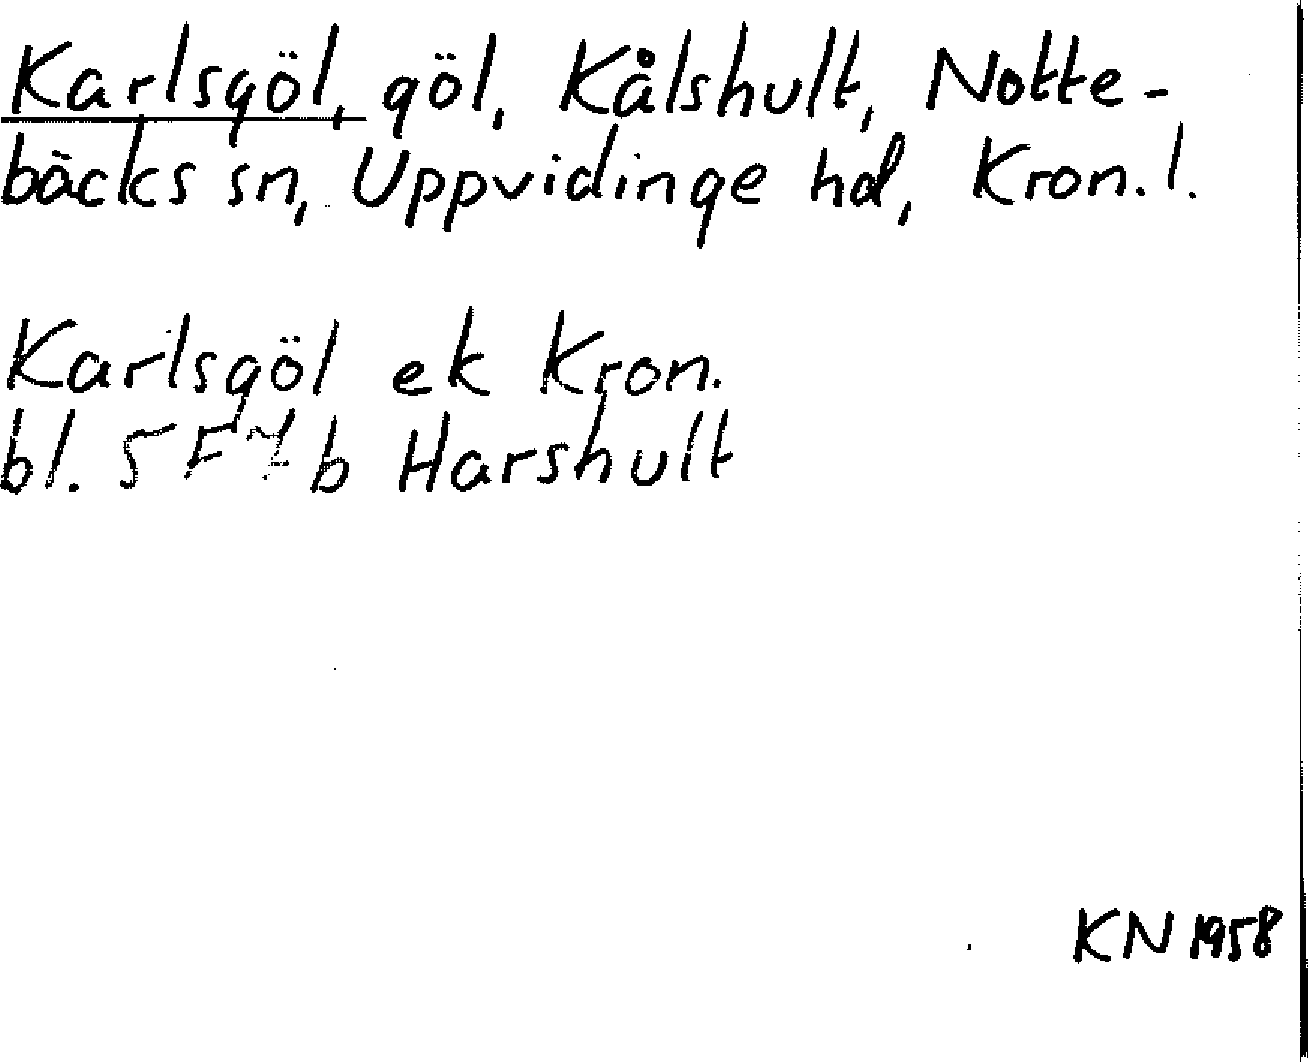 Karlsgöl, göl, Kålshult, Notte-
bäcks sn, Uppvidinge hd, Kron. l.
Karlsgöl ek Kron.
bl. 5 F 7 b Harshult
KN 1958